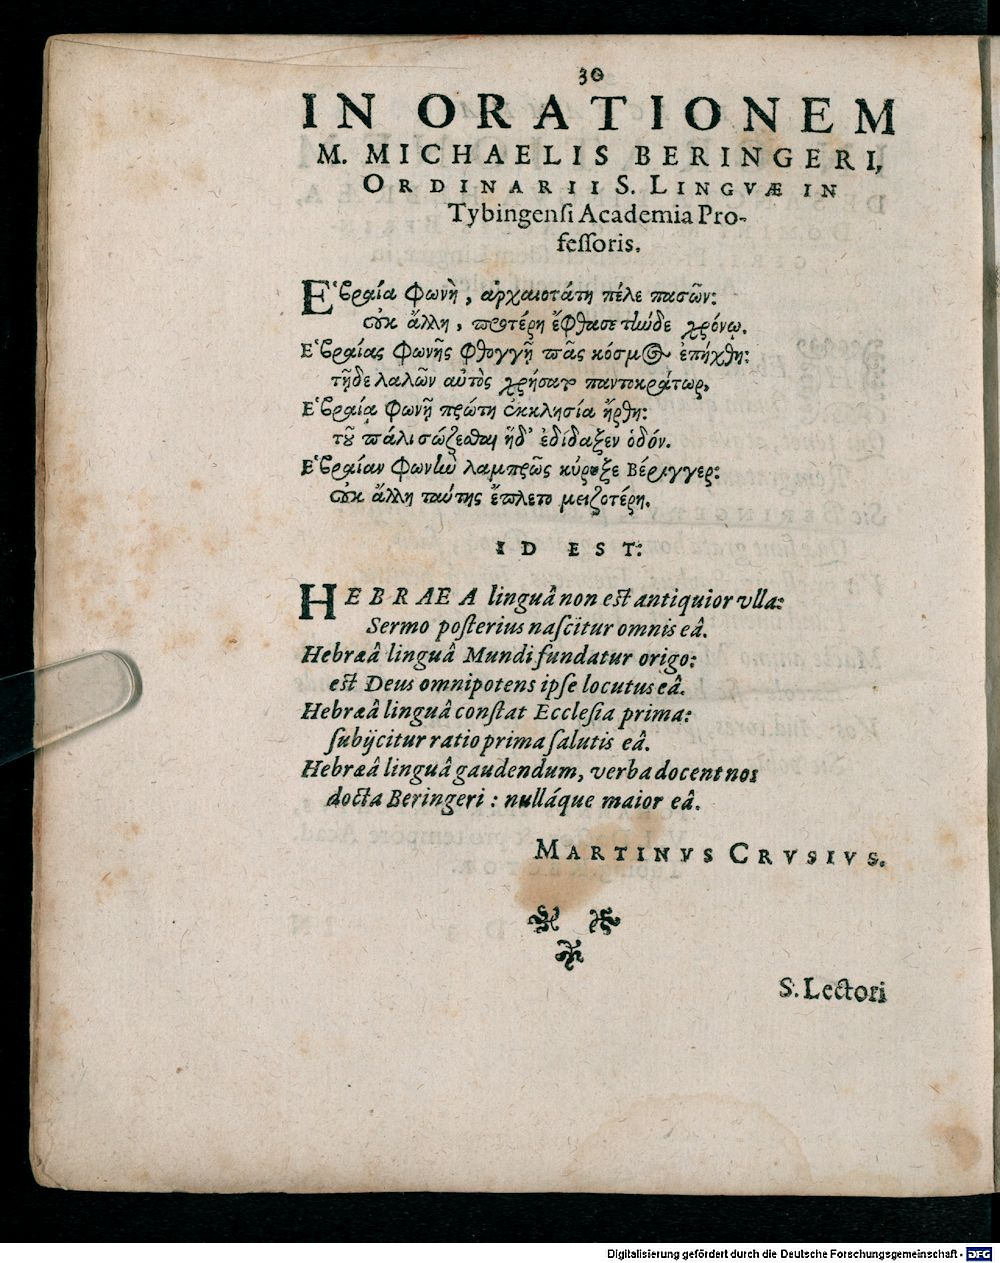 30
IN ORATIONEM
M. MICHAELIS BERINGERI,
ORDINARII S. LINGVÆ IN
Tybingensi Academia Pro-
fessoris.
Ἑβραία φωνὴ, ἀρχαιοτάτη πέλε πασῶν:
οὐκ ἄλλη, προτέρη ἔφθασε τήνδε χρόνῳ.
Ἑβραίας φωνῆς φθογγῇ πᾶς κόσμος ἐπήχθη:
τῇδε λαλῶν αὐτὸς χρήσατο παντοκράτωρ,
Ἑβραία φωνῇ πρώτη ἐκκλησία ἤρθη:
τοῦ πάλι σώζεσθαι ἥδ' ἐδίδαξεν ὁδόν.
Ἑβραίαν φωνὴν λαμπρῶς κύρυξε Βέριγγερ:
οὐκ ἄλλη ταύτης ἔπλετο μειζοτέρη.
ID EST:
HEBRAEA linguâ non est antiquior vlla:
Sermo posterius nascitur omnis eâ.
Hebræâ linguâ Mundi fundatur origo:
est Deus omnipotens ipse locutus eâ.
Hebræâ linguâ constat Ecclesia prima:
subijcitur ratio prima salutis eâ.
Hebræâ linguâ gaudendum, verba docent nos
docta Beringeri: nulláque maior eâ.
MARTINVS CRVSIVS.
S. Lectori
Digitalisierung gefördert durch die Deutsche Forschungsgemeinschaft - DFG